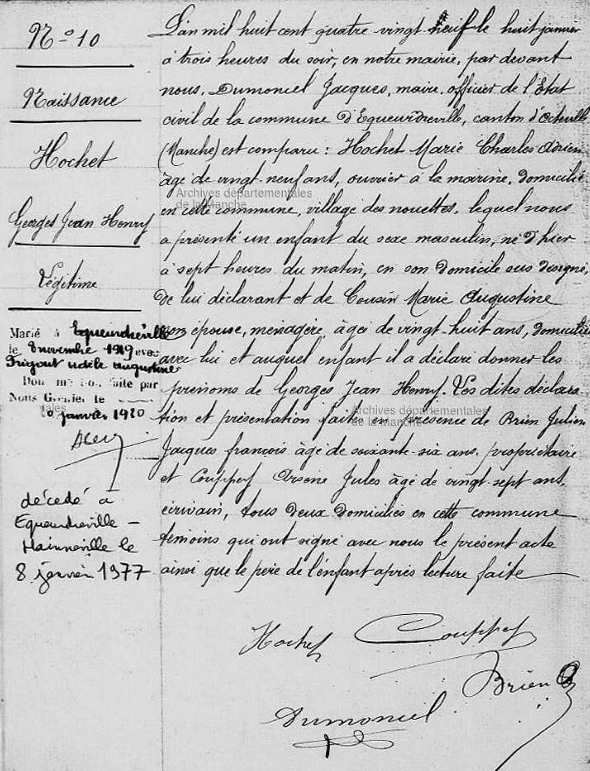 N° 10
Naissance
Hochet
Georges Jean Henry
Légitime
Marié à Equeurdreville
le 8 novembre 1919 avec
Augustine
mention faite par
Nous Greffier le
janvier 1920
décédé à
Equeurdreville –
Hainneville le
8 janvier 1977
L'an mil huit cent quatre vingt neuf le huit janvier
à trois heures du soir, en notre mairie, par devant
nous, Dumoncel Jacques, maire, officier de l'Etat
civil de la commune d'Equeurdreville, canton d'Octeville
(Manche) est comparu : Hochet Marie Charles Adrien
âgé de vingt-neuf ans, ouvrier à la marine, domicilié
en cette commune, village des nouettes, lequel nous
a présenté un enfant du sexe masculin, né d'hier
à sept heures du matin, en son domicile sus désigné,
de lui déclarant et de Cousin Marie Augustine
son épouse, ménagère, âgée de vingt-huit ans, domiciliée
avec lui et auquel enfant il a déclaré donner les
prénoms de Georges Jean Henry. Les dites déclara-
tion et présentation faites en présence de Brien Julien
Jacques françois âgé de soixante-six ans, propriétaire
et Couppey Arsene Jules âgé de vingt-sept ans,
écrivain, tous deux domiciliés en cette commune
témoins qui ont signé avec nous le présent acte
ainsi que le père de l'enfant après lecture faite
Hochet Couppey
Brien
Dumoncel
Archives départementales
de la Manche
Archives départementales
de la Manche
tales